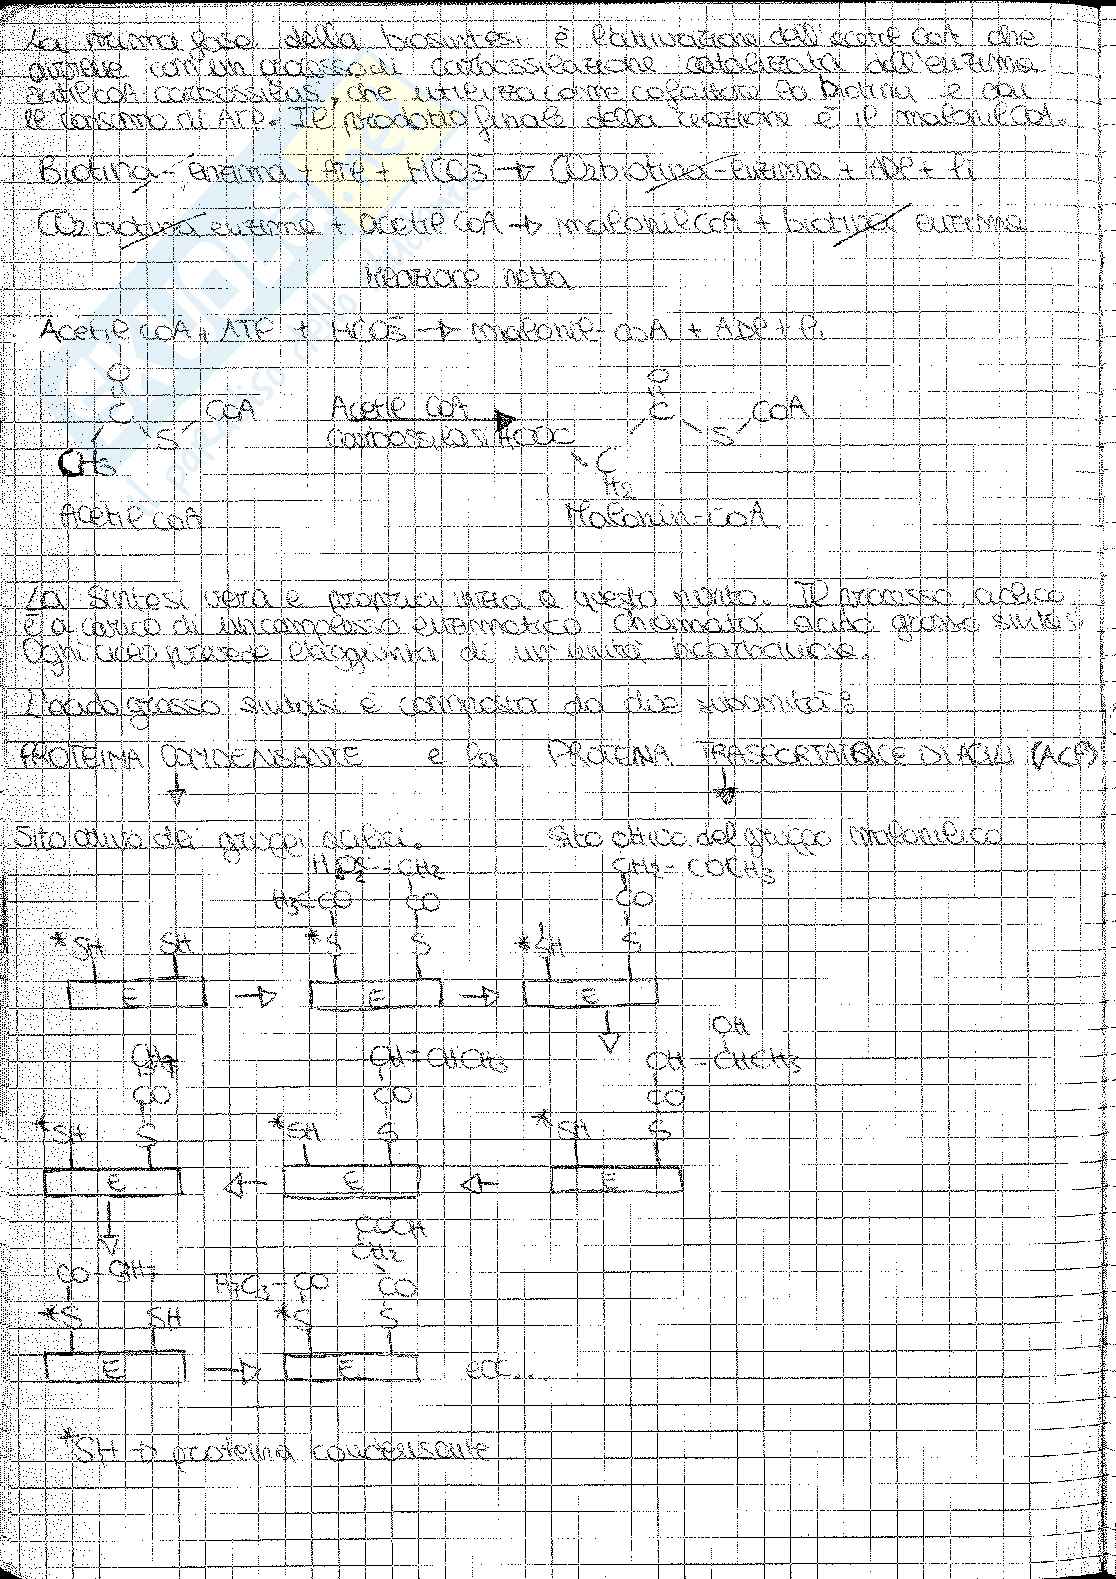 La prima fase della biosintesi è l'attivazione dell'acetil CoA che
avviene con un processo di carbossilazione catalizzata dall'enzima
acetil CoA carbossilasi, che utilizza come cofattore la biotina e con
il consumo di ATP. Il prodotto finale della reazione è il malonil CoA.
Biotina - Enzima + ATP + HCO3⁻ → CO2 biotina - Enzima + ADP + Pi
CO2 biotina enzima + acetil CoA → malonil CoA + biotina enzima
Reazione netta
Acetil CoA + ATP + HCO3⁻ → malonil-CoA + ADP + Pi
O O
C CoA Acetil CoA C CoA
S Carbossilasi HOOC S
CH3 C
H2
Acetil CoA Malonin-CoA
La sintesi vera e propria inizia a questo punto. Il processo, ciclico,
è a carico di un complesso enzimatico chiamata acido grasso sintasi
Ogni ciclo prevede l'aggiunta di un'unità bicarboniosa.
L'acido grasso sintasi è composta da due subunità:
PROTEINA CONDENSANTE e la PROTEINA TRASPORTATRICE DI ACILI (ACP)
Sito attivo dei gruppi acilici. Sito attivo del gruppo malonilico
CH2 CH2 - COCH3
H3C CO CO CO
*SH SH *S S *SH S
E → E → E
OH
CH=CHCH3 CH - CHCH3
CO CO CO
*SH S *SH S *SH S
E ← E ← E
COOH
CH2
CO - H7C3 - CO CO
*S SH *S S
E → E ecc...
*SH → proteina condensante